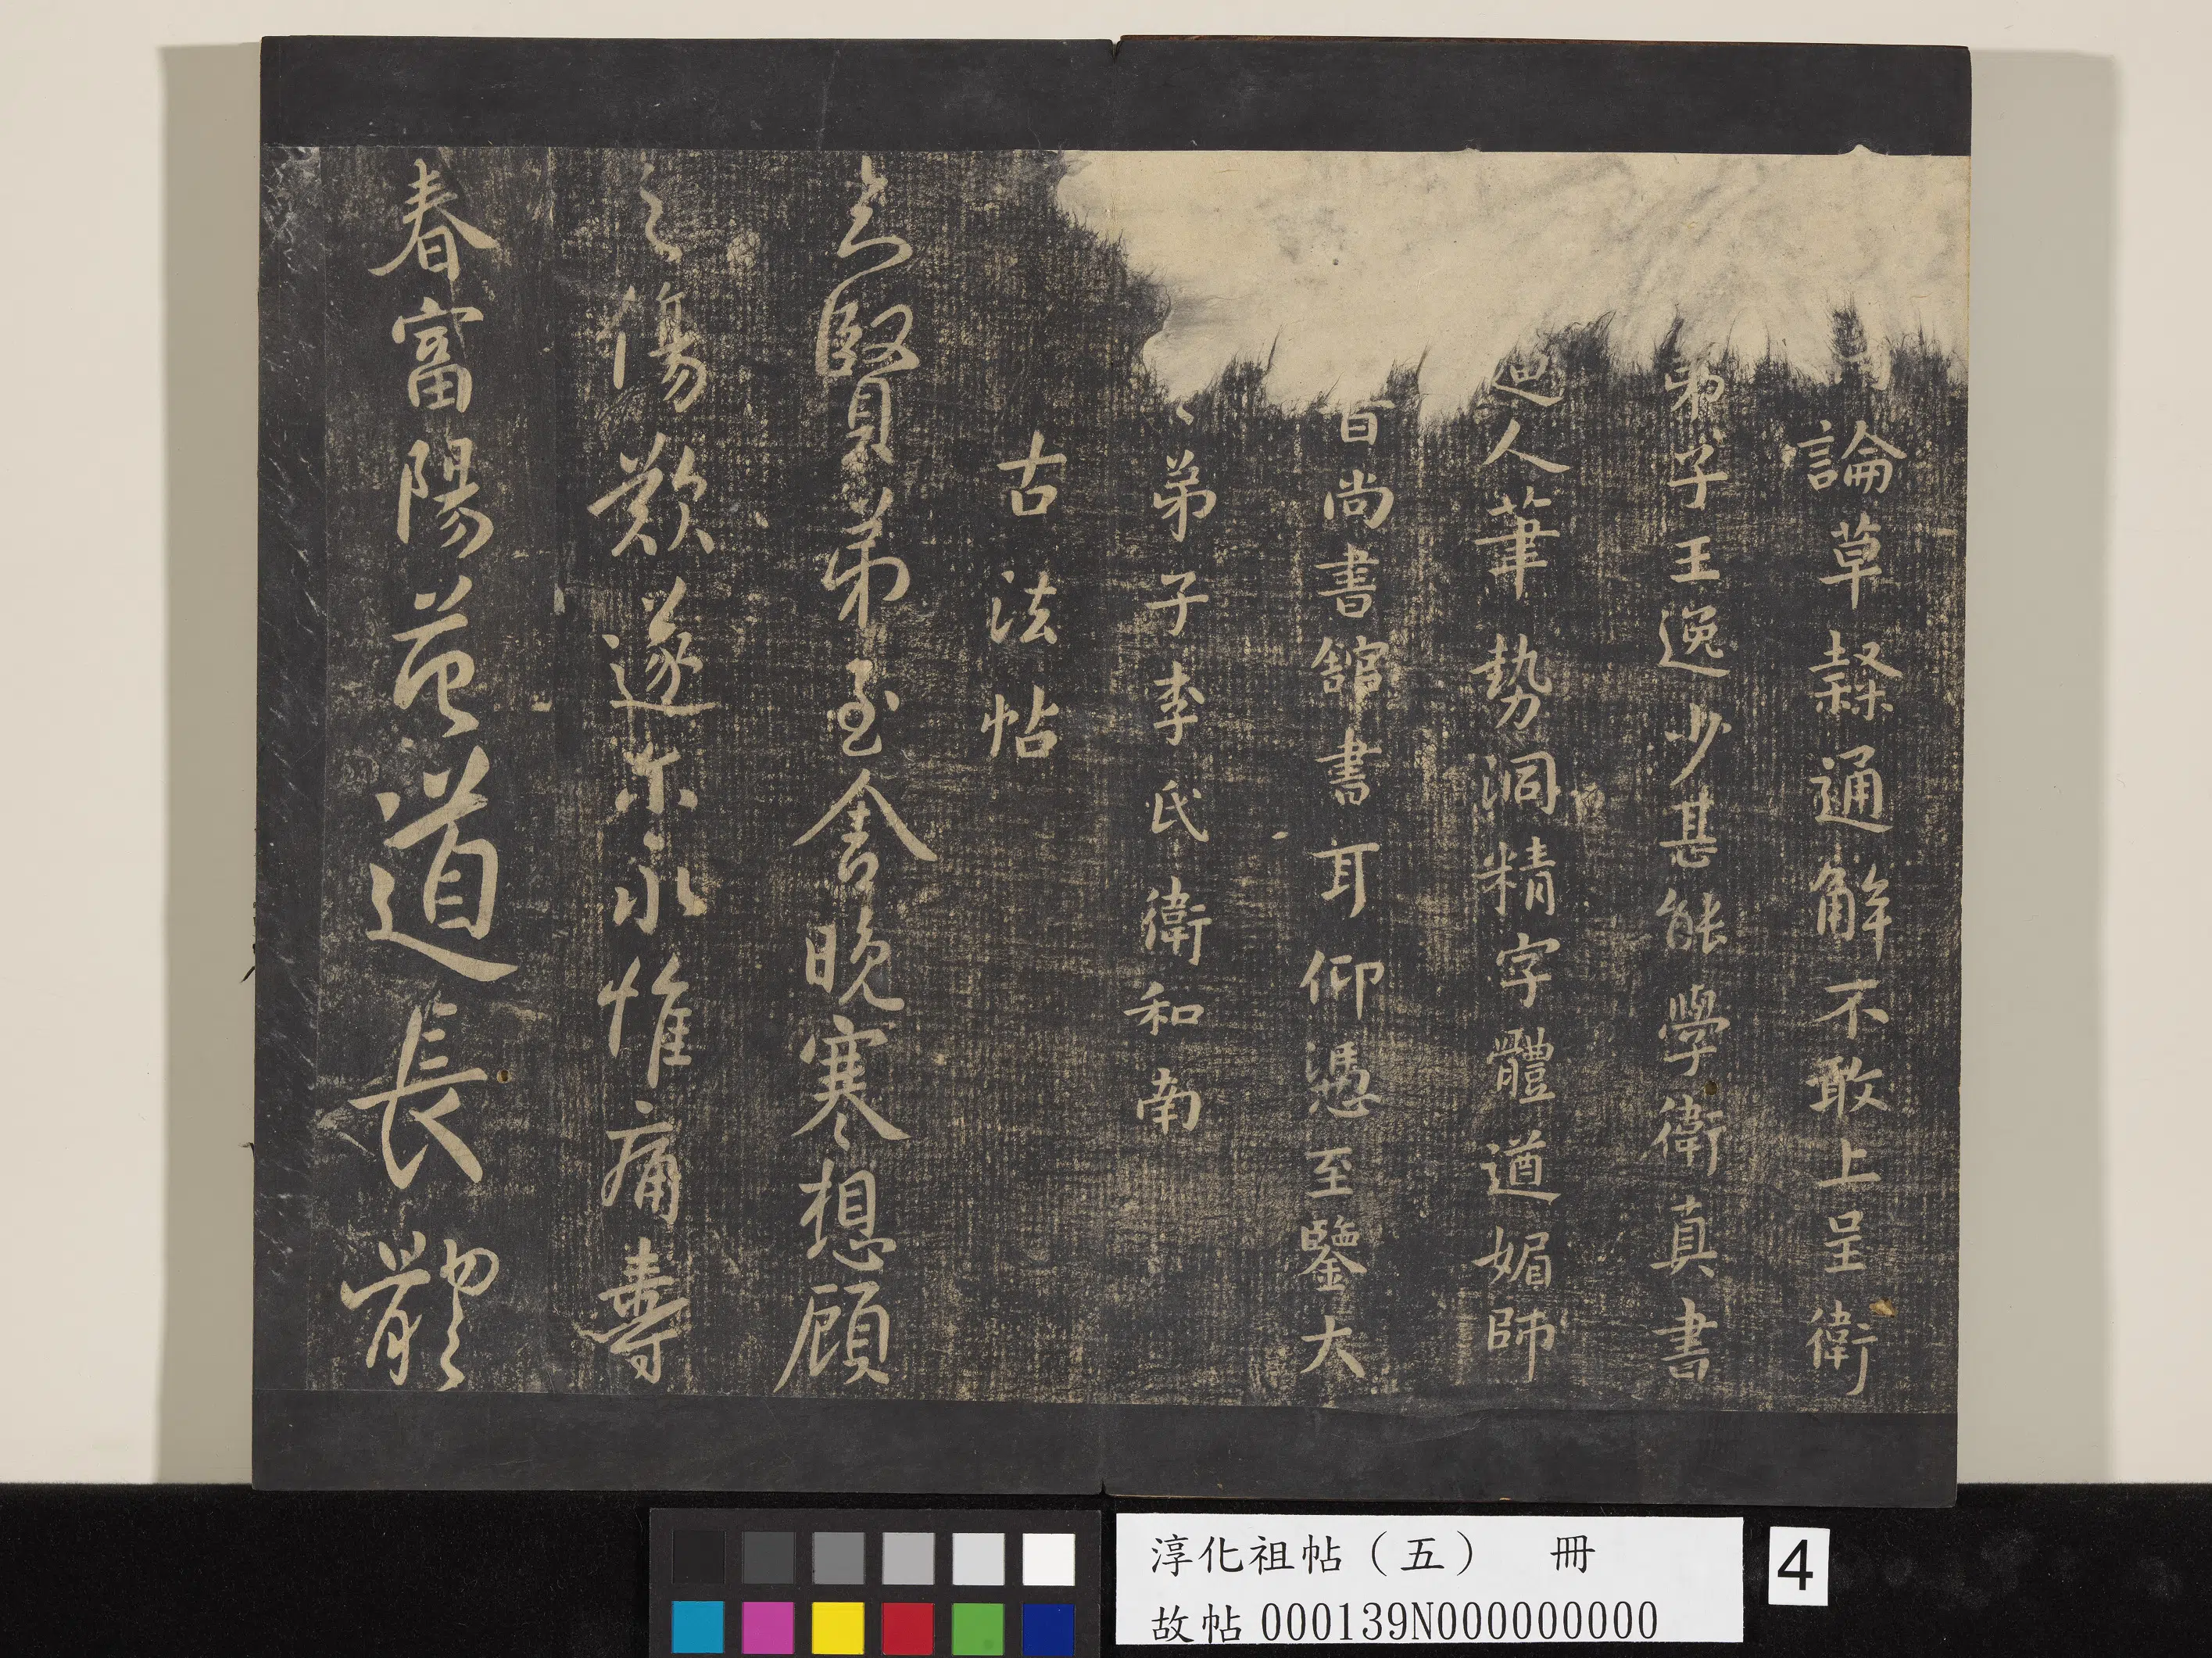 論草隸通解不敢上呈衛
弟子王逸少甚能學衛真書
迫人筆勢洞精字體遒媚師
尚書館書耳仰憑至鑒大
弟子李氏衛和南
古法帖
知賢弟至舍晚寒想顧
之傷歎遂尓永惟痛壽
春富陽益道長體
淳化祖帖（五） 冊
故帖 000139N000000000
4